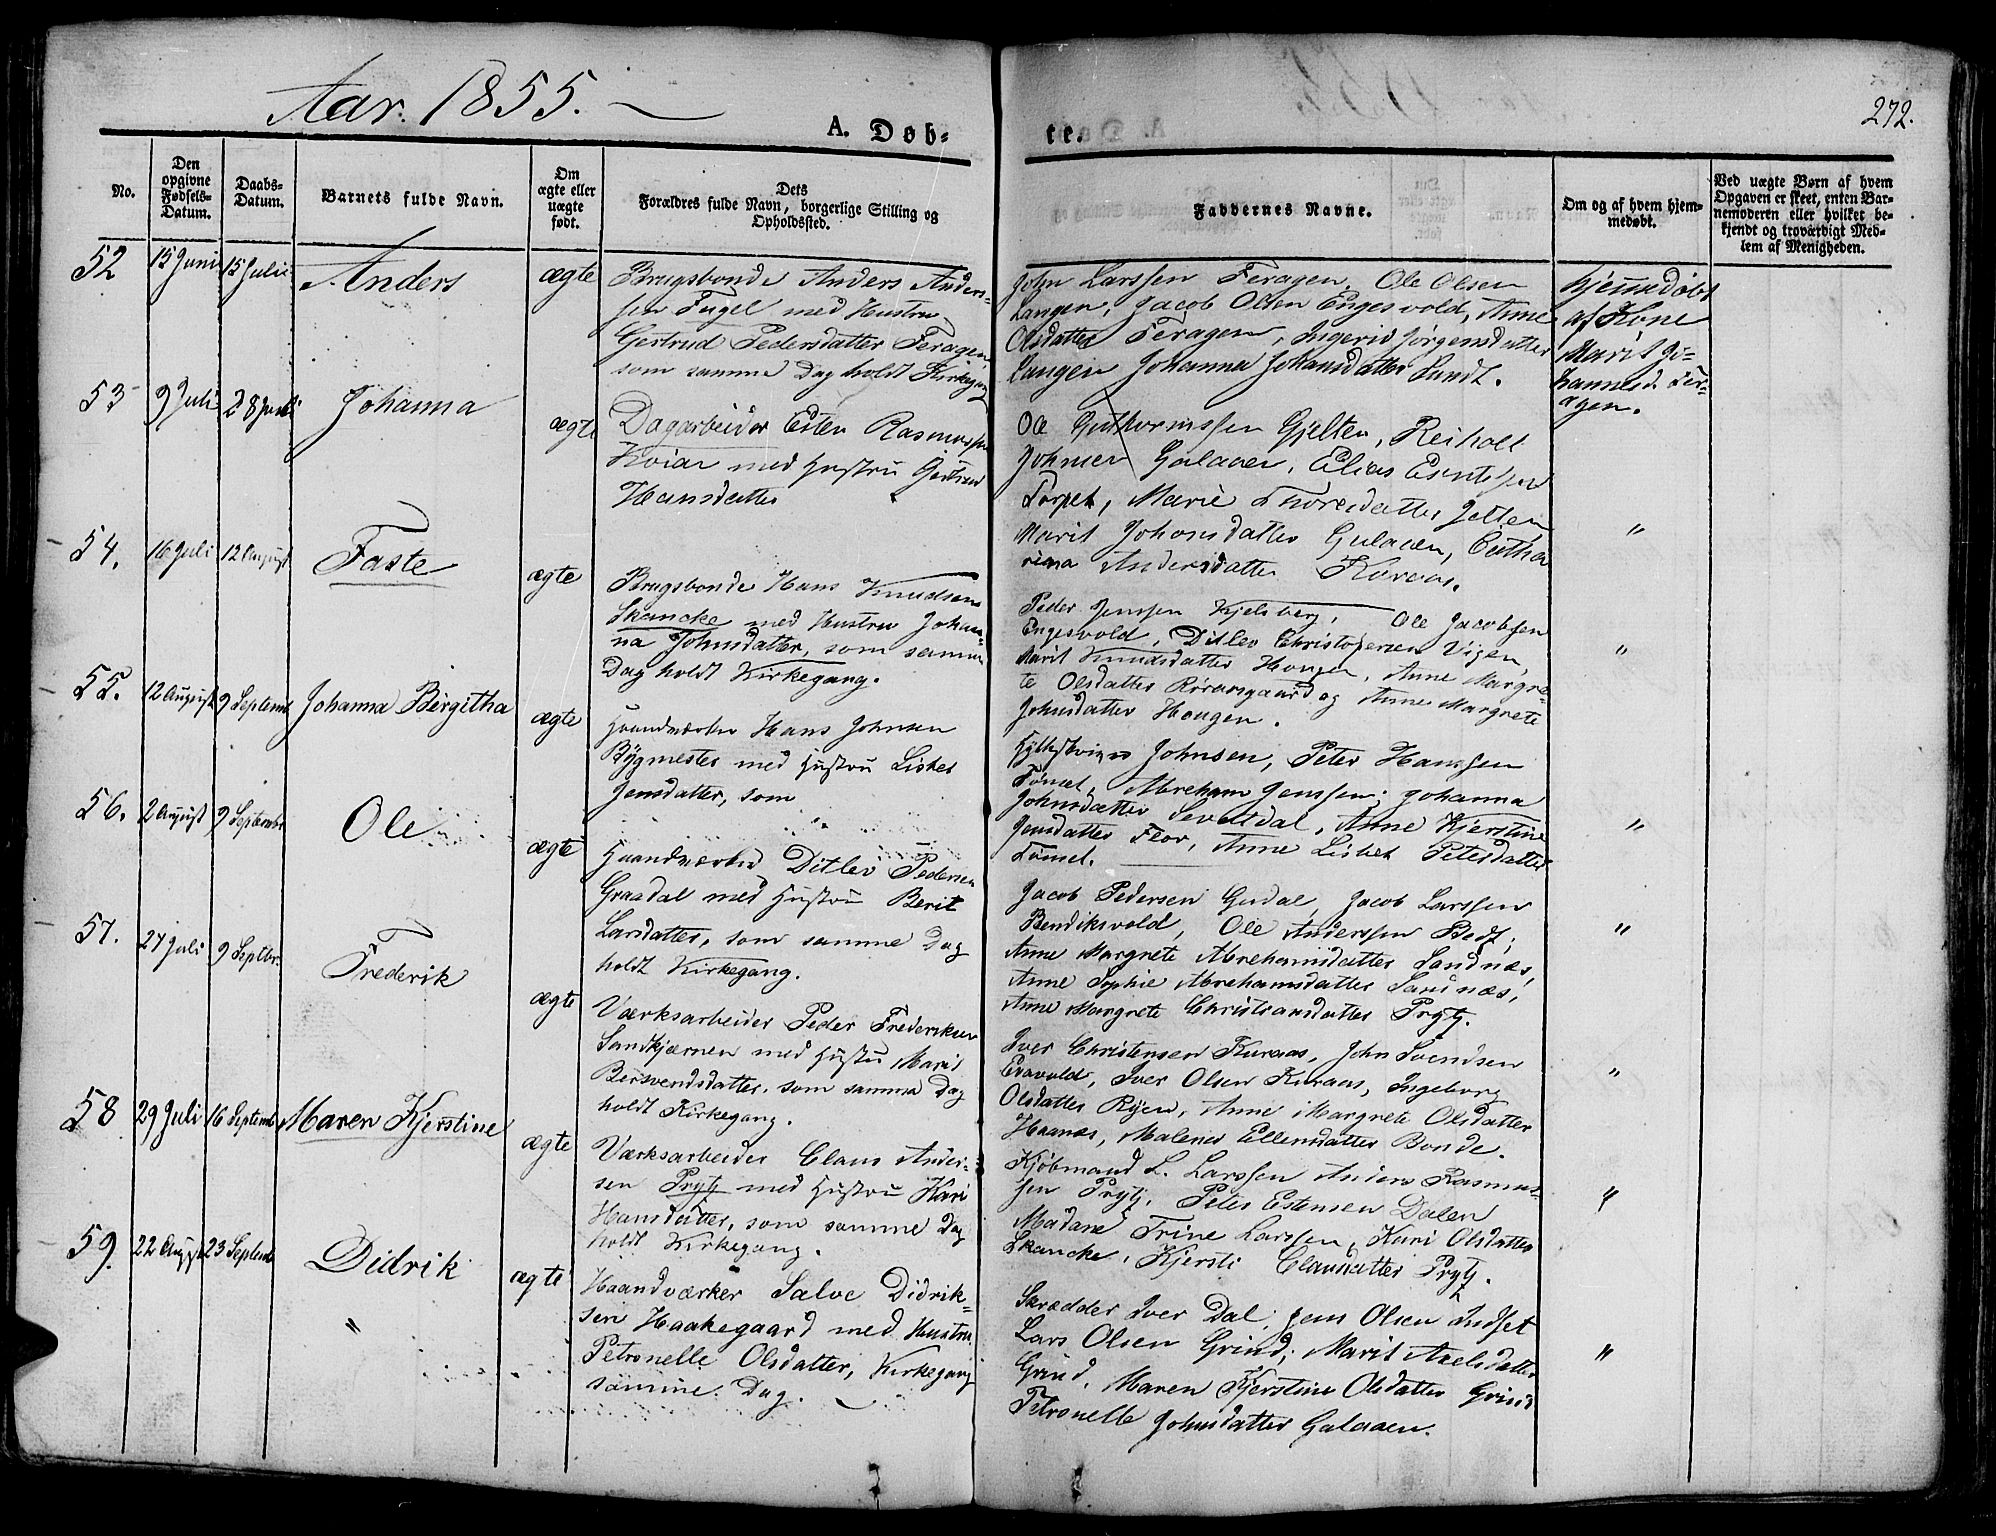 Aar 1855.
272.
A. Døb-
te.
No.
Den opgivne Fødsels-Datum.
Daabs-Datum.
Barnets fulde Navn.
Om ægte eller uægte født.
Dets Forældres fulde Navn, borgerlige Stilling og Opholdssted.
Faddernes Navne.
Om og af hvem hjem-medøbt.
Ved uægte Børn af hvem Opgaven er skeet, enten Bar-nemoderen eller hvilket be-kjendt og troværdigt Med-lem af Menigheden.
52
15 Juni
15 Julii
Anders
ægte
Brugsbonde Anders Anders-
sen Fugel med Hustru
Gertrud Pedersdatter Feragen
som samme Dag holdt Kirkegang
John Larssen Feragen, Ole Olsen
Langen, Jacob Olsen Engesvold, Anne
Olsdatter Feragen, Ingerid Jørgensdatter
Langen Johanna Johansdatter Sundt.
hjemmedøbt
af Kone
Marit Jo-
hannesd. Fer-
agen.
53
9 Juli
28 Juli
Johanna
ægte
Dagarbeider Esten Rasmussen
Koiar med Hustru Gjertrud
Hansdatter
Ole Guthormssen Gjelten, Reiholt
Johnsen Galaaen, Elias Esntsen
Torpet, Marie Thoresdatter Jelten
Marit Johansdatter Galaaen, Catha
rina Andersdatter Kuraas.
"
54.
16 Juli
12 August
Faste
ægte
Brugsbonde Hans Knudsen
Skancke med Hustru Johan-
na Johnsdatter, som samme
Dag holdt Kirkegang.
Peder Jenssen Kjelsberg, Ole Jacobsen
Engesvold, Ditlev Christopersen Vigen,
Marit Knudsdatter Hougen, Anne Margre-
te Olsdatter Røraasgaard og Anne Margrete
Johnsdatter Hougen.
"
55.
12 August
9 Septemb
Johanna Birgitha
ægte
Haandværker Hans Johnsen
Bygmester med Hustru Lisbet
Jensdatter, som
Johnsen, Peter Hanssen
Tønset, Abreham Jenssen, Johanna
Johnsdatter Sevatdal, Anne Kjerstine
Jensdatter Floor, Anne Lisbet Petersdatter
Tønset.
"
56.
2 August
9 Septembr
Ole
ægte
Haandværker Ditlev Pedersen
Graadal med Hustru Berit
Larsdatter, som samme Dag
holdt Kirkegang.
Jacob Pedersen Gudal, Jacob Larssen
Bendiksvold, Ole Anderssen Bedt,
Anne Margrete Abrehamsdatter Sandnæs,
Anne Sophie Abrehamsdatter Sandnæs,
Anne Margrete Christiansdatter Prytz.
"
57.
27 Juli
9 Septbr.
Frederik
ægte
Værksarbeider Peder Frederiksen
Sandkjærnen med Hustru Marit
Bersvendsdatter, som samma Dag
holdt Kirkegang.
Iver Christensen Kuraas, John Svendsen
Evavold, Iver Olsen Kuraas, Ingeborg
Olsdatter Ryen, Anne Margrete Olsdatter
Haanæs, Malene Ellensdatter Bonde.
"
58
29 Juli
16 Septemb
Maren Kjerstine
ægte
Værksarbeider Claus Ander-
sen Prytz med Hustru Kari
Hansdatter, som samme Dag
holdt Kirkegang.
Kjøbmand L. Larssen Anders Rasmus-
sen Prytz, Peter Estensen Dalen
Madane Trine Larssen, Kari Olsdatter
Skancke, Kjersti Clausdatter Prytz.
"
59.
22 August
23 Septemb
Didrik
"
ægte
Haandværker Salve Didrik-
sen Haakegaard med Hustru
Petronelle Olsdatter, Kirkegang
samme Dag.
Skrædder Iver Dal, Jens Olsen Indset
Lars Olsen Grind, Marit Axelsdatter
Grind, Maren Kjerstine Olsdatter Grind
Petronelle Johnsdatter Galaaen.
"